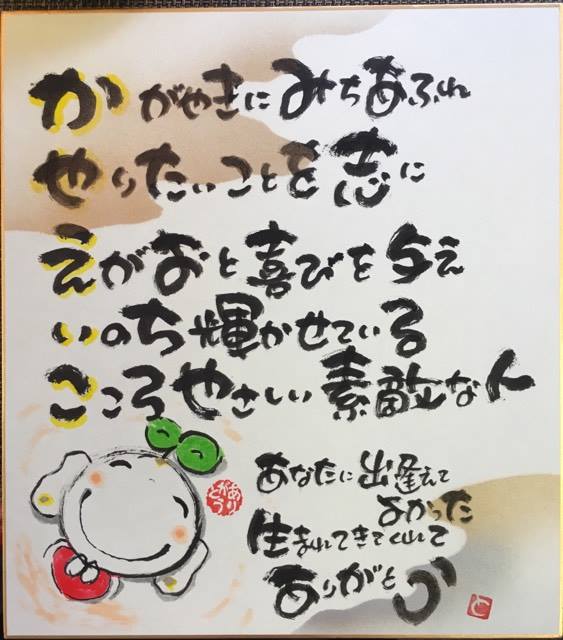 かがやきにみちあふれ
やりたいことを志に
えがおと喜びを与え
いのち輝かせている
こころやさしい素敵な人
あなたに出逢えて
よかった
生まれてきてくれて
ありがとう
ありがとう
と